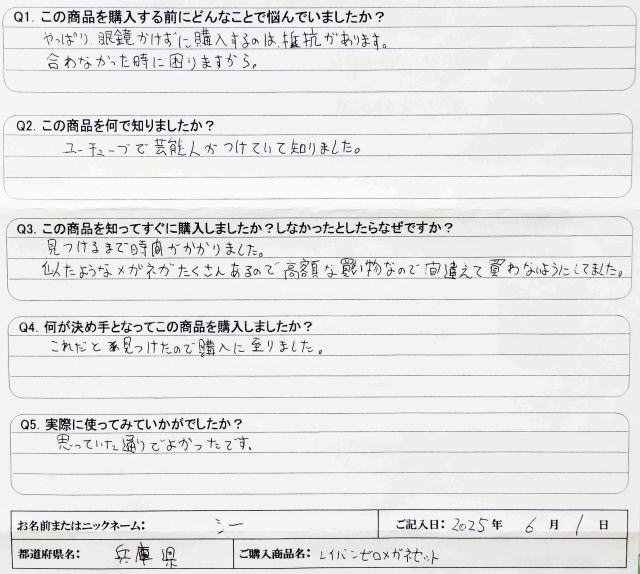 Q1. この商品を購入する前にどんなことで悩んでいましたか？
やっぱり、眼鏡かけずに購入するのは、抵抗があります。
合わなかった時に困りますから。
Q2. この商品を何で知りましたか？
ユーチューブで芸能人がつけていて知りました。
Q3. この商品を知ってすぐに購入しましたか？しなかったとしたらなぜですか？
見つけるまで時間がかかりました。
似たようなメガネがたくさんあるので高額な買い物なので間違えて買わないようにしてました。
Q4. 何が決め手となってこの商品を購入しましたか？
これだと見つけたので購入に至りました。
Q5. 実際に使ってみていかがでしたか？
思っていた通りでよかったです。
お名前またはニックネーム： シー ご記入日：2025年 6月 1日
都道府県名： 兵庫県 ご購入商品名：レイバンゼロメガネセット